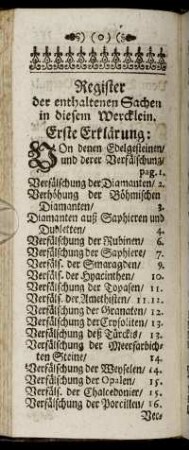 (o)
Register
der enthaltenen Sachen
in diesem Wercklein.
Erste Erklärung:
VOn denen Edelgesteinen/
und derer Verfälschung/
pag. 1.
Verfälschung der Diamanten/ 2.
Verhöhung der Böhmischen
Diamanten/ 3.
Diamanten auß Saphieren und
Dubletten/ 4.
Verfälschung der Rubinen/ 6.
Verfälschung der Saphiere/ 7.
Verfäls. der Smaragden/ 9.
Verfäls. der Hyacinthen/ 10.
Verfälschung der Topasen/ 11.
Verfäls. der Amethisten/ 11. 12.
Verfälschung der Granaten/ 12.
Verfälschung der Crysoliten/ 13.
Verfälschung deß Türckis/ 13.
Verfälschung der Meerfarbich-
ten Steine/ 14.
Verfälschung der Weyselen/ 14.
Verfälschung der Opalen/ 15.
Verfäls. der Chalcedonier/ 15.
Verfälschung der Porcillen/ 16.
Ver-